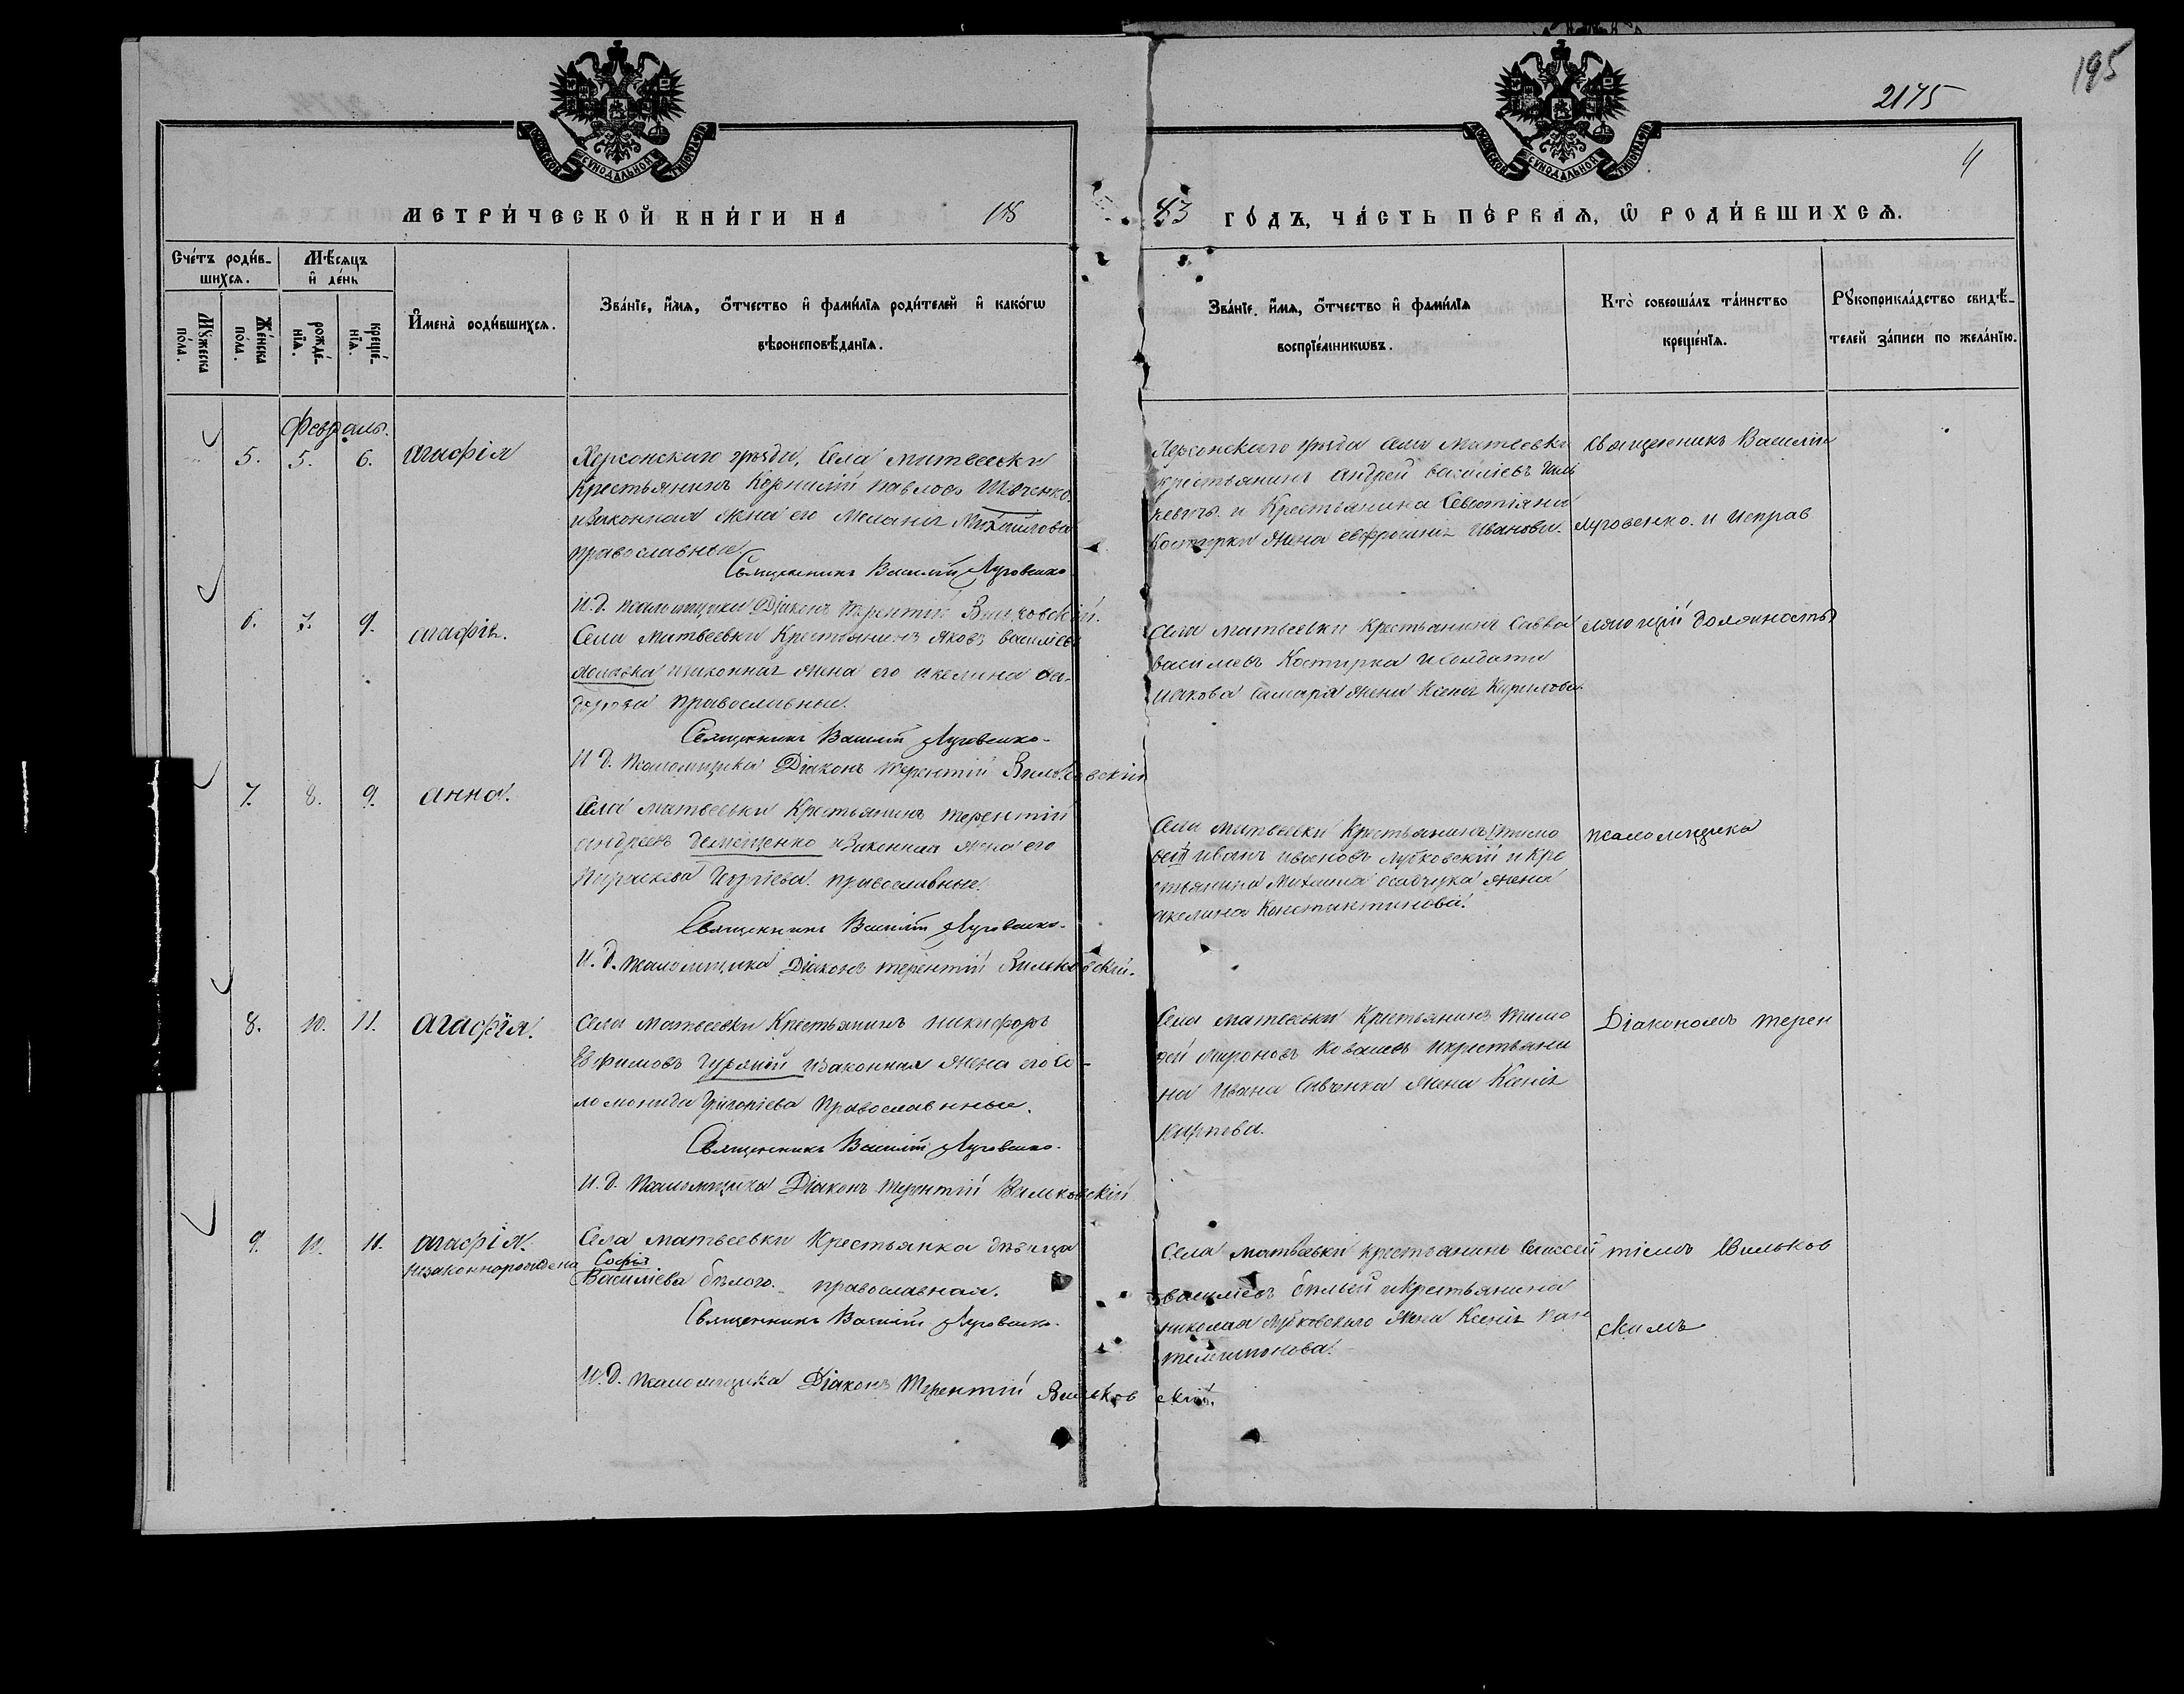 195
2175
4
МОСКОВСКОЙ СѴНОДАЛЬНОЙ ТИПОГРАФІИ
МОСКОВСКОЙ СѴНОДАЛЬНОЙ ТИПОГРАФІИ
МЕТРИ́ЧЕСКОЙ КНИ́ГИ НА 18
83 ГО́ДЪ, ЧА́СТЬ ПЕ́РВАЯ, Ѽ РОДИ́ВШИХСЯ.
Сче́тъ роди́в-
шихся.
Мѣ́сяцъ
и҆ де́нь
Мꙋ́жеска
по́ла.
Же́нска
по́ла.
рожде́-
нїя.
креще́-
нїя.
И҆мена̀ роди́вшихся.
Зва́нїе, и҆́мя, ѻ҆́тчество и҆ фами́лїя роди́телей и҆ како́гѡ
вѣроисповѣ́данїя.
Зва́нїе, и҆́мя, ѻ҆́тчество и҆ фами́лїя
воспрїе́мникѡвъ.
Кто̀ соверша́лъ та́инство
креще́нїя.
Рꙋкоприкла́дство свидѣ́-
телей за́писи по жела́нїю.
Февраль.
5. 5. 6. Агафія
Херсонскаго уѣзда, Села Матвеевки
Крестьянинъ Корнилій Павловъ Шевченко
изаконная Жена его Меланія Михайлова
православные.
Священникъ Василій Луговенко
И.д. псаломщика Діаконъ Терентій Вильковскій.
Херсонскаго уѣзда села Матвеевки
крестьянинъ Андрей Василіевъ
и Крестьянина Севастіяна
Костырки Жена Евфросинія Иванова.
Священникъ Василій
Луговенко. и исправ
6. 7. 9. Агафія.
Села Матвеевки Крестьянинъ Яковъ Василіевъ
изаконная Жена его Акелина Фе-
дорова православные.
Священникъ Василій Луговенко.
И.д. Псаломщика Діаконъ Терентій Вильковскій
Села Матвеевки Крестьянинъ Савва
Василіевъ Костырка и Солдата
Иакова Самара Жена Ксенія Кирилова.
ляющій должность
7. 8. 9. Анна.
Села Матвеевки Крестьянинъ Терентій
Андреевъ Демещенко изаконная Жена его
Параскева православные.
Священникъ Василій Луговенко.
И.д. Псаломщика Діаконъ Терентій Вильковскій.
Села Матвеевки Крестьянинъ Тимо
фей Иванъ Ивановъ Лубковскій и Кре
стьянина Михаила Осадчука Жена
Акелина Константинова.
псаломщика
8. 10. 11. Агафія.
Села Матвеевки Крестьянинъ Никифоръ
Ефимовъ Гуряной изаконная Жена его Со-
ломонида Григоріева Православнные.
Священникъ Василій Луговенко.
И.д. Псаломщика Діаконъ Терентій Вильковскій
Села Матвеевки Крестьянинъ Тимо
фей Мироновъ Ковалевъ икрестьяни
на Ивана Савченка Жена Ксенія
Карпова.
Діакономъ Терен
9. 10. 11. Агафія.
незаконнорождена
Села Матвеевки Крестьянка дѣвица
Софія
Василіева Бѣлого. православная.
Священникъ Василій Луговенко.
И.д. Псаломщика Діаконъ Терентій Вильков скій.
Села Матвеевки крестьянинъ
Василіевъ Бѣлый икрестьянина
Николая Лубковскаго Жена Ксенія Пан
телеимонова.
тіемъ Вильков
скимъ